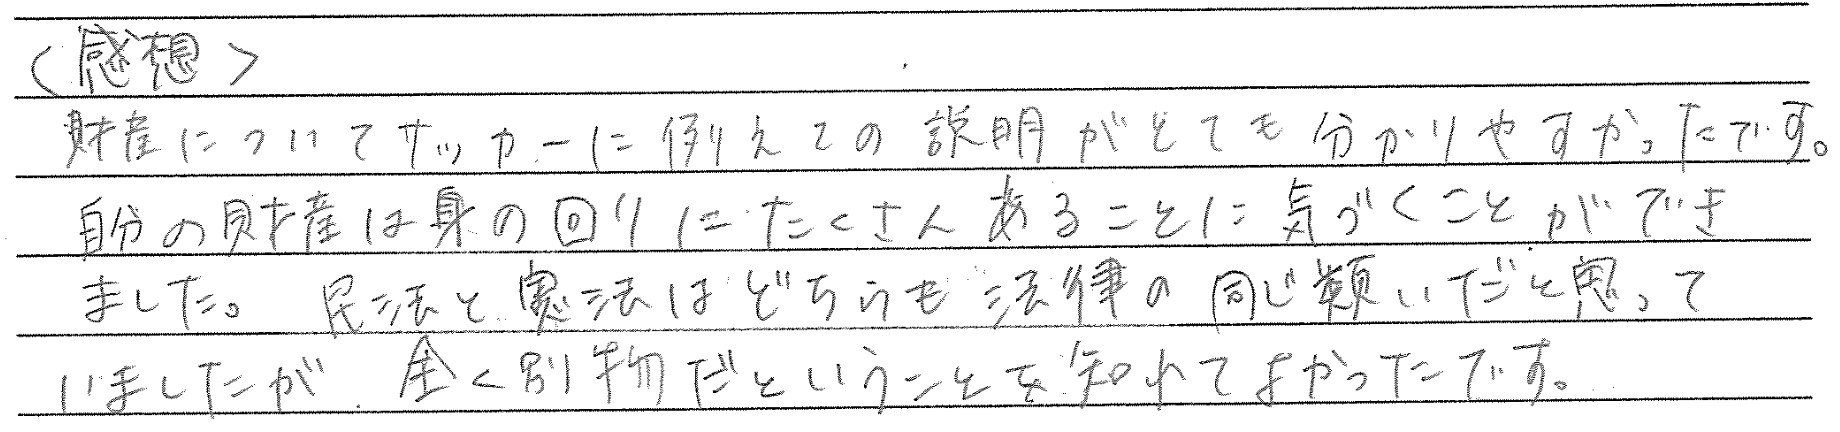 〈感想〉
財産についてサッカーに例えての説明がとても分かりやすかったです。
自分の財産は身の回りにたくさんあることに気づくことができ
ました。民法と憲法はどちらも法律の同じ類いだと思って
いましたが、全く別物だということを知れてよかったです。